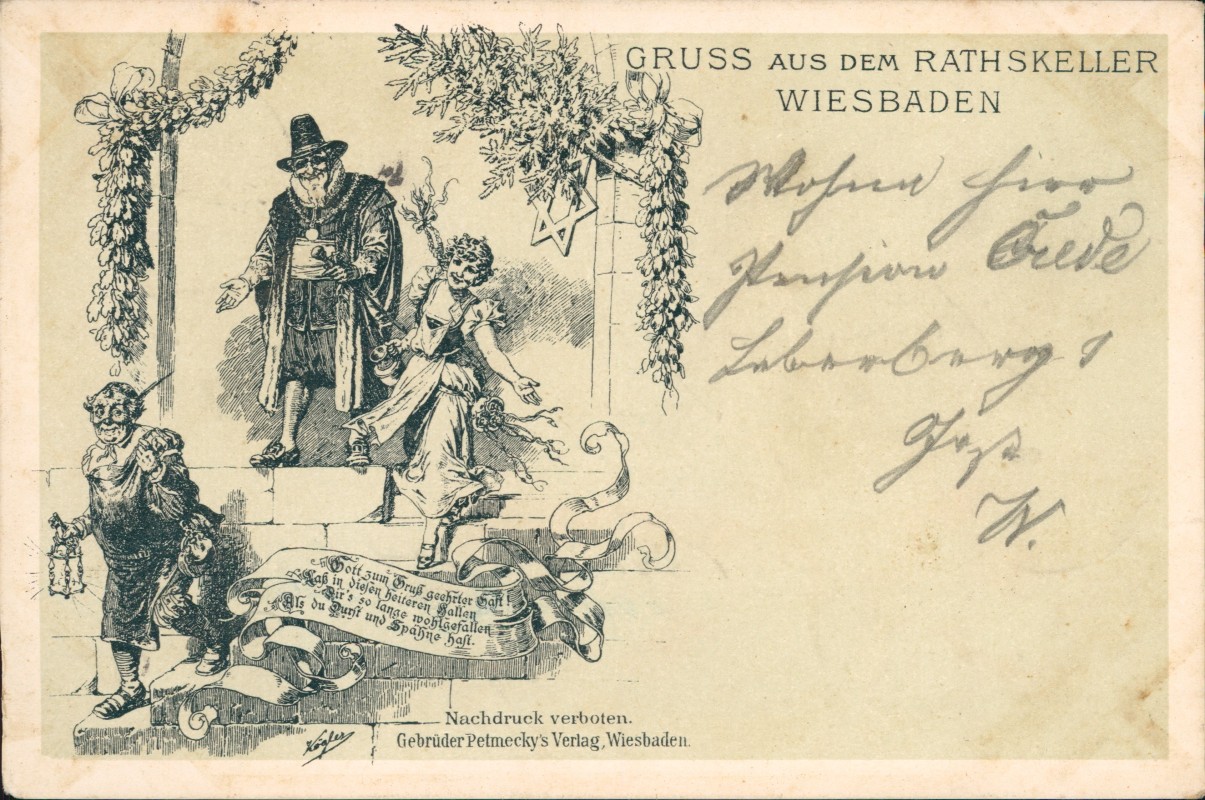 GRUSS AUS DEM RATHSKELLER
WIESBADEN
Wohne hier
Pension Crede
Leberberg 1
W.
Gott zum Gruß geehrter Gast
Laß in diesen heiteren Hallen
Dir's so lange wohlgefallen
Als du Durst und Spähne hast.
Kögler
Nachdruck verboten.
Gebrüder Petmecky's Verlag, Wiesbaden.